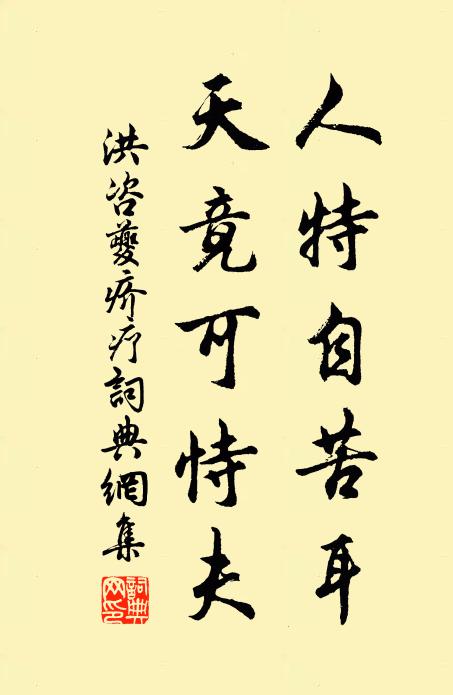 人特自苦耳
天竟可恃夫
洪咨夔疥疔詞典網集
詞典
网印